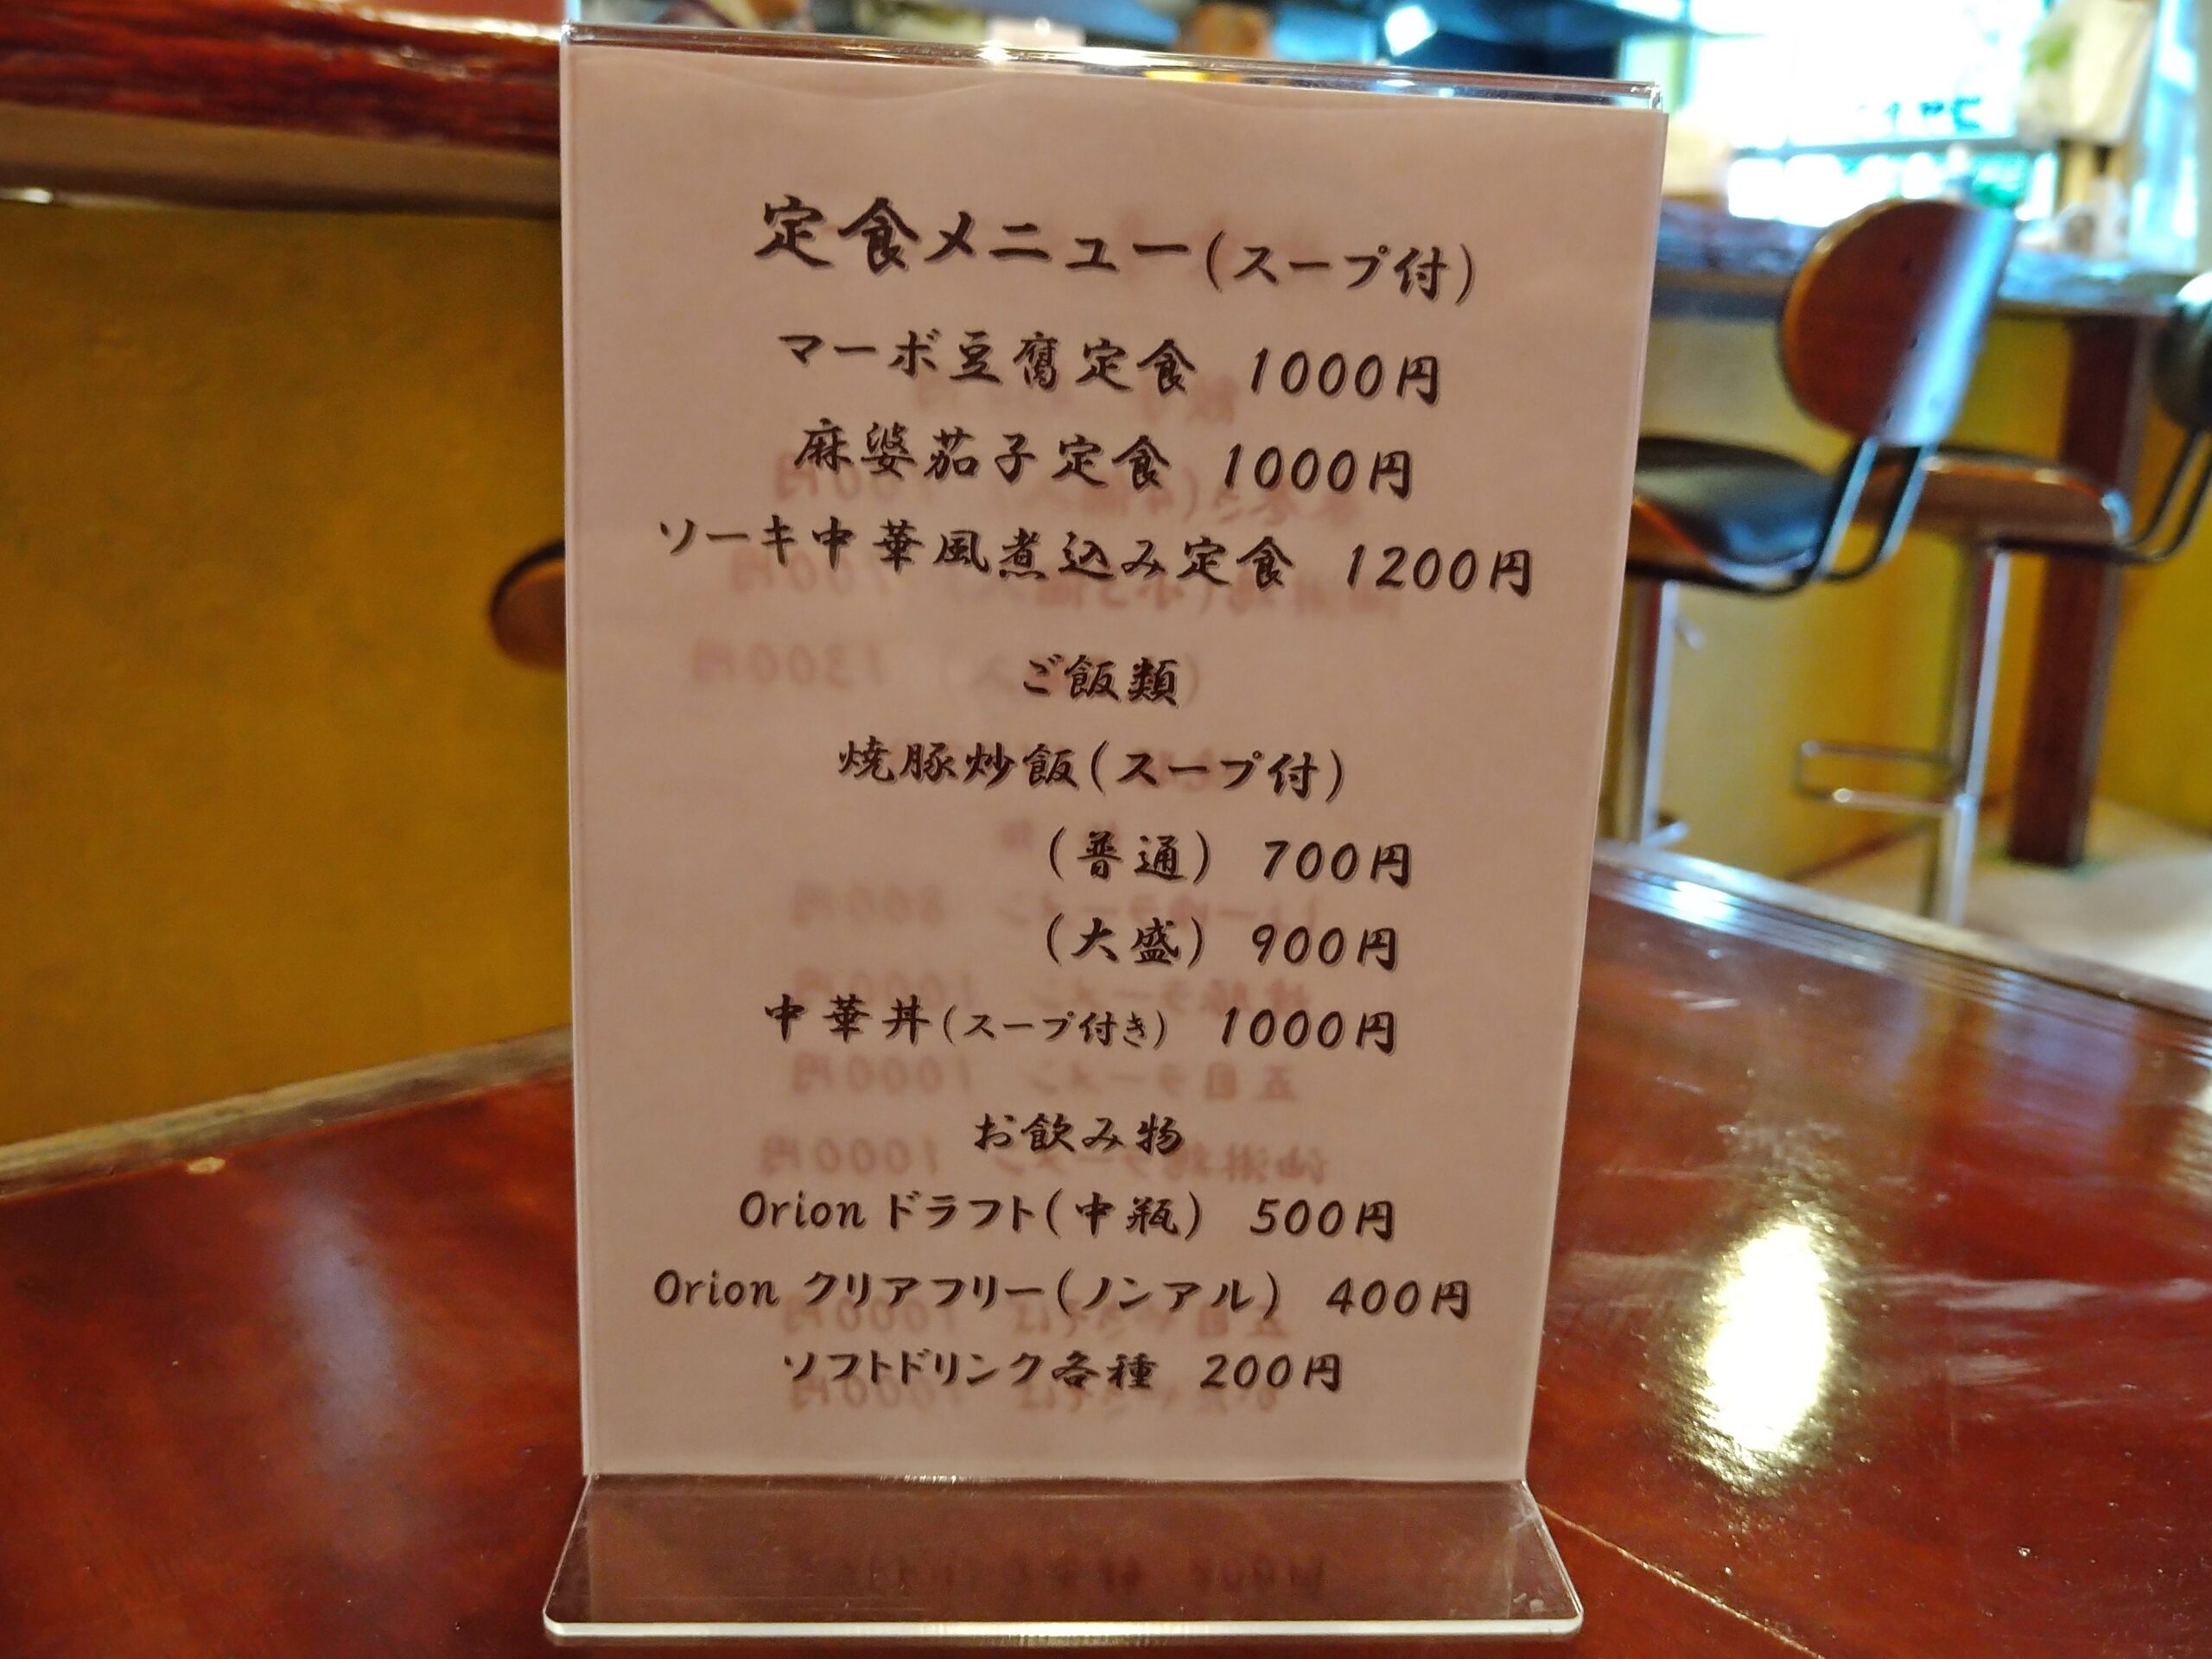 定食メニュー(スープ付)
マーボ豆腐定食 1000円
麻婆茄子定食 1000円
ソーキ中華風煮込み定食 1200円
ご飯類
焼豚炒飯(スープ付)
(普通) 700円
(大盛) 900円
中華丼(スープ付き) 1000円
お飲み物
Orion ドラフト(中瓶) 500円
Orion クリアフリー(ノンアル) 400円
ソフトドリンク各種 200円